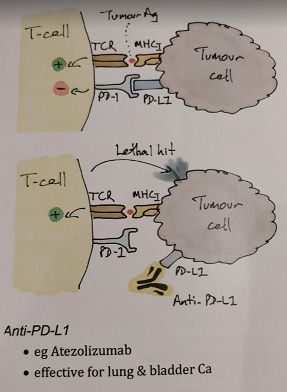 Tumour Ag
T-cell
TCR MHC I
Tumour
cell
+
-
PD-1 PD-L1
Lethal hit
T-cell
TCR MHC I
Tumour
cell
+
PD-1
PD-L1
Anti-PD-L1
Anti-PD-L1
• eg Atezolizumab
• effective for lung & bladder Ca